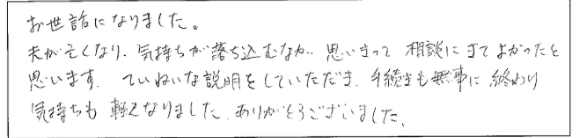 お世話になりました。
夫が亡くなり、気持ちが落ち込むなか 思いきって 相談にきてよかったと
思います。ていねいな説明をしていただき、手続きも無事に終わり
気持ちも軽くなりました。ありがとうございました。